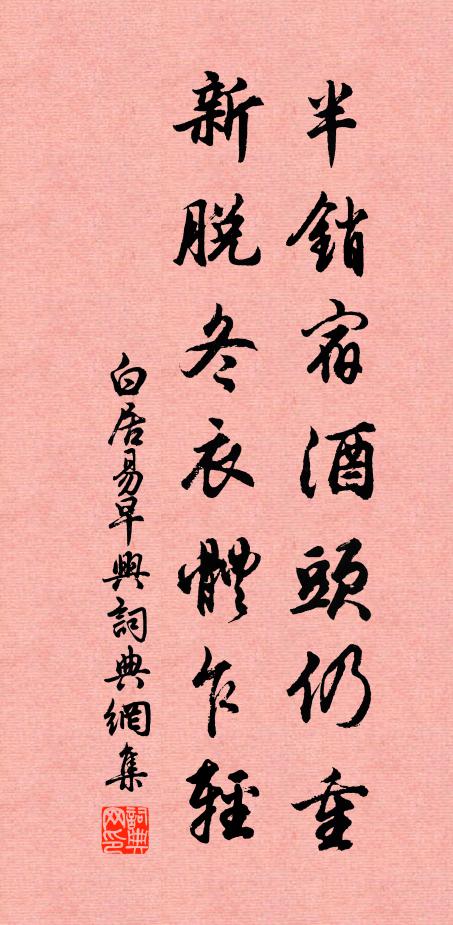 半銷宿酒頭仍重
新脱冬衣體乍輕
白居易早興詞典網集
詞典网印